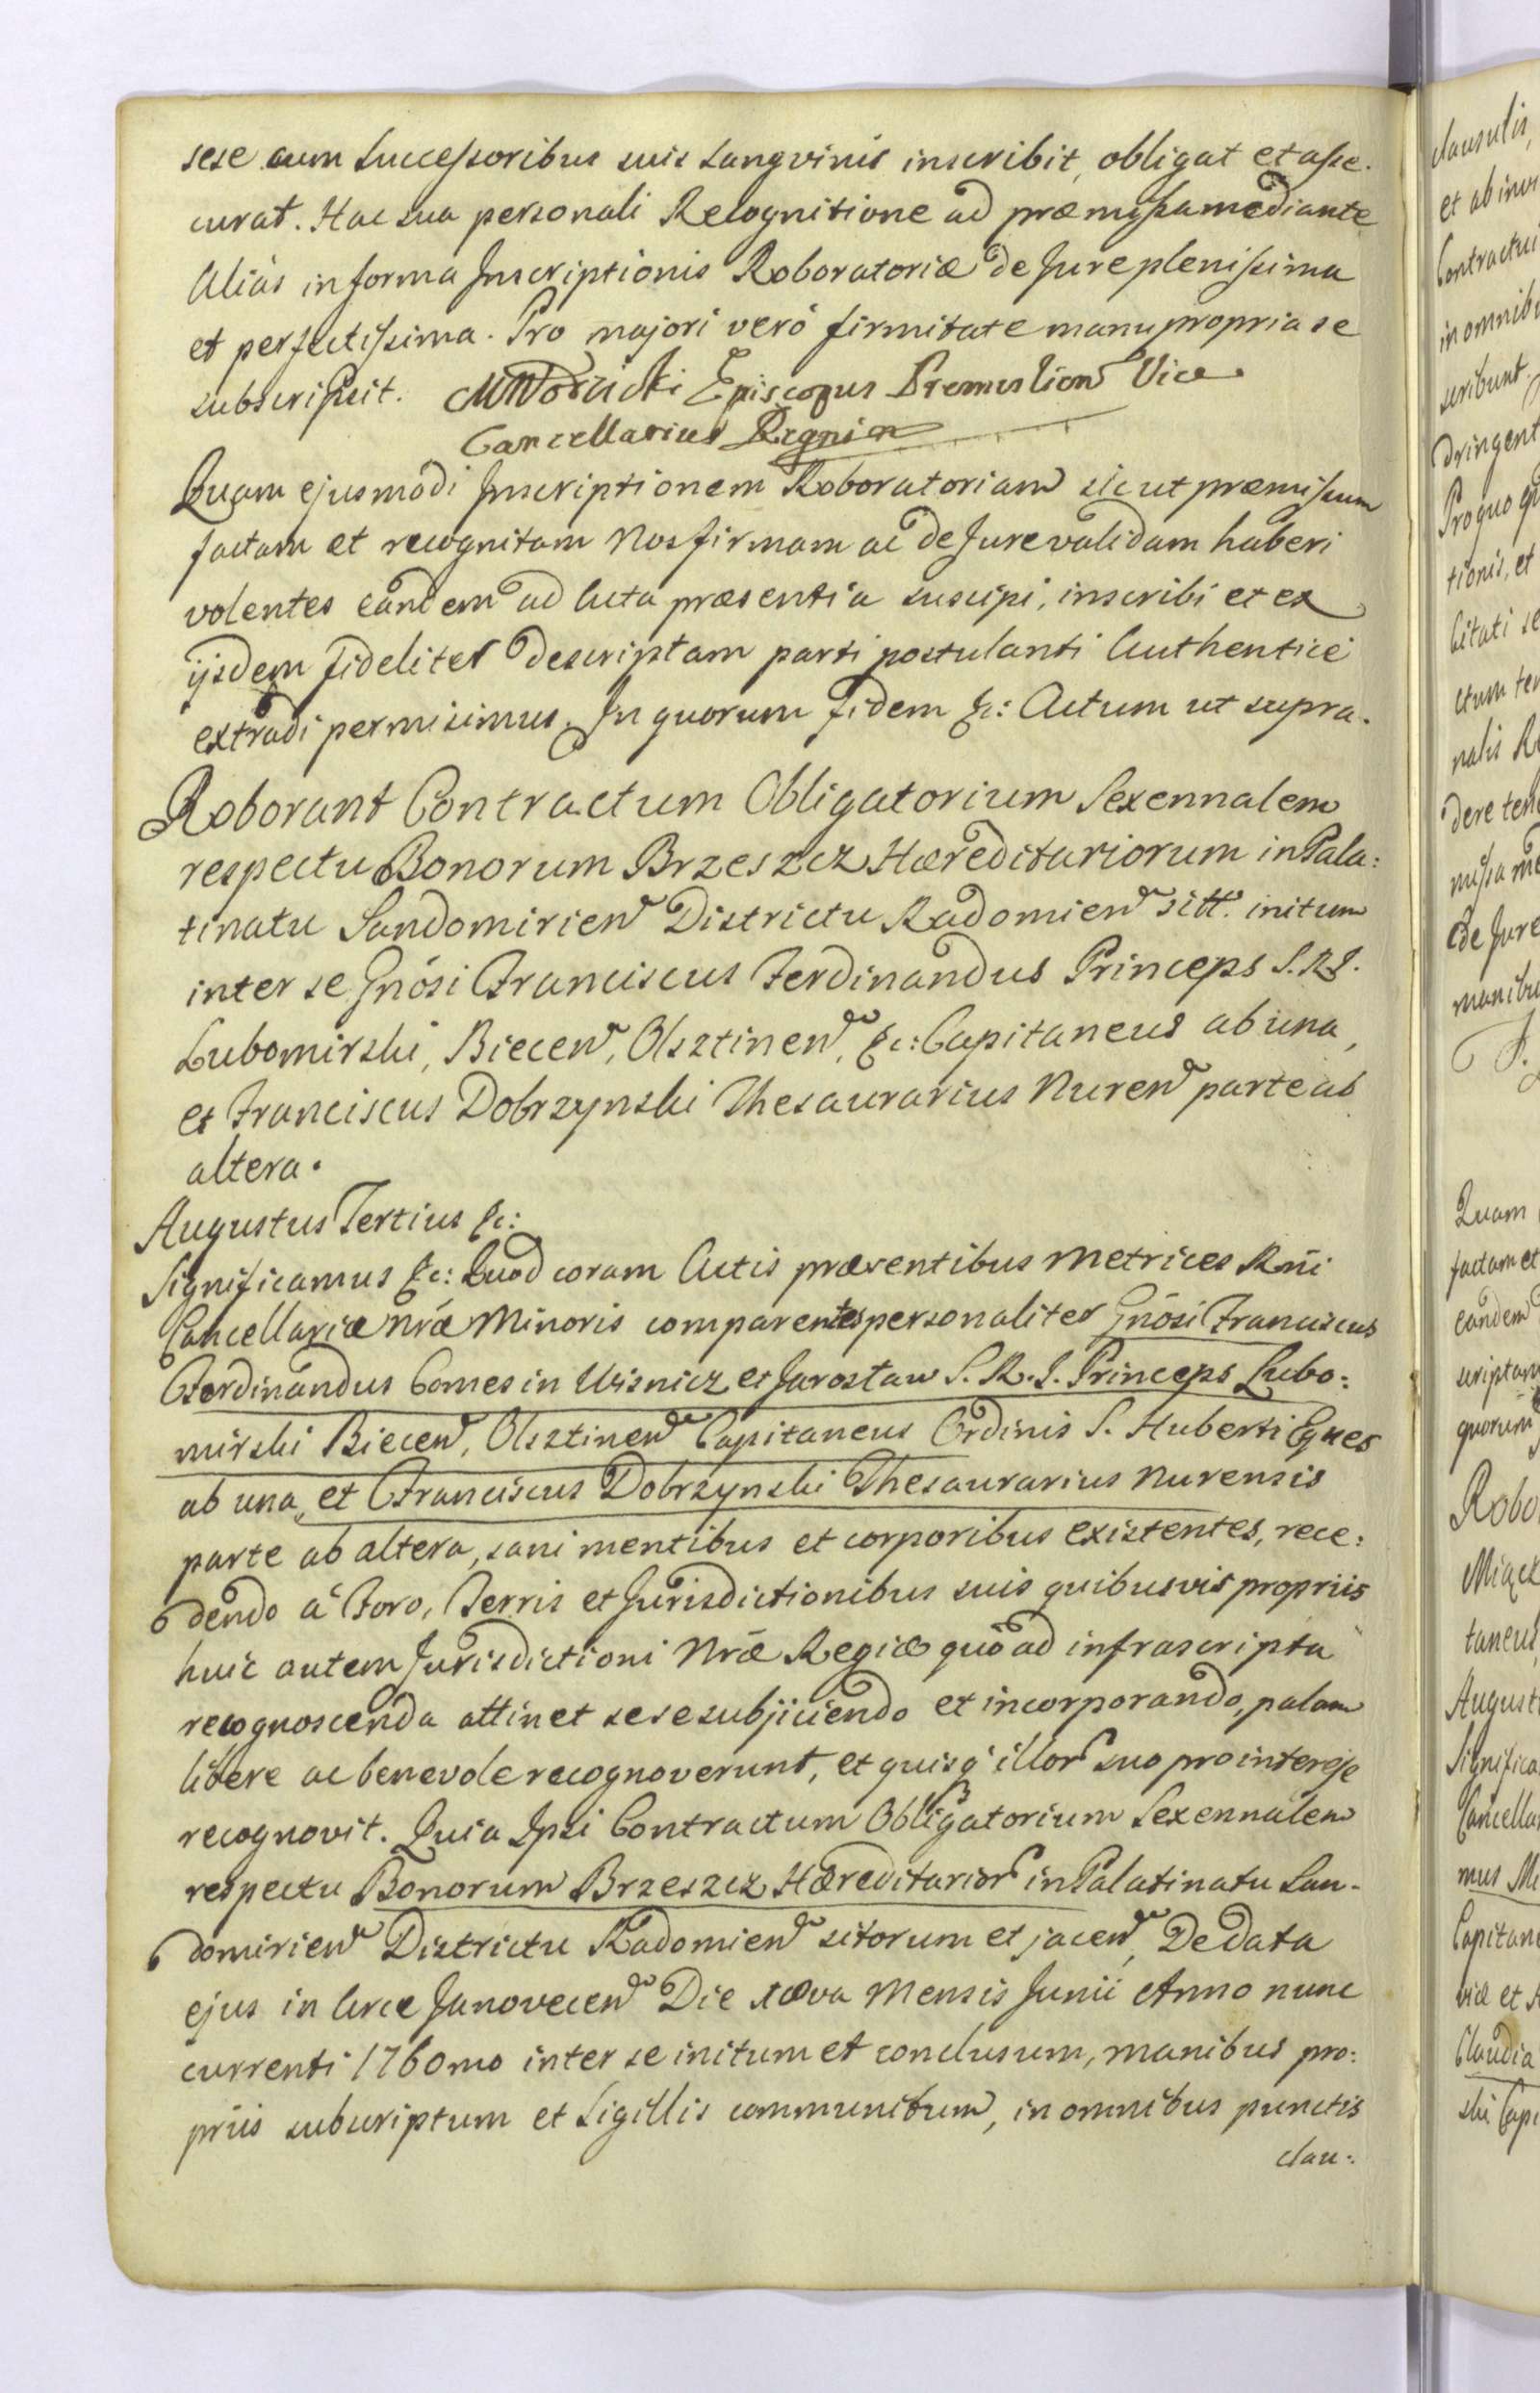 sese cum Successoribus suis Sangvinis inscribit, obligat et asse-
curat. Hac sua personali Recognitione ad præmissa mediante
Aliàs in forma Inscriptionis Roboratoriæ de Jure plenissima
et perfectissima. Pro majori verò firmitate manu propria se
subscripsit. MWodzicki Episcopus Premislien Vice
Cancellarius Regni m
Quam ejusmodi Inscriptionem Roboratoriam sicut præmissum
factam et recognitam Nos firmam ac de Jure validam haberi
volentes eandem ad Acta præsentia suscipi, inscribi et ex
ijsdem fideliter descriptam parti postulanti Authenticè
extradi permisimus. In quorum fidem &c: Actum ut supra.
Roborant Contractum Obligatorium Sexennalem
respectu Bonorum Brzeszcz Hæreditariorum in Pala:
tinatu Sandomirien Districtu Radomien sitt. initum
inter se Gnōsi Franciscus Ferdinandus Princeps S.R.I.
Lubomirski, Biecen, Olsztinen, &c: Capitaneus ab una,
et Franciscus Dobrzynski Thesaurarius Nuren parte ab
altera.
Augustus Tertius &c:
Significamus &c: Quod coram Actis præsentibus Metrices Rnī
Cancellariæ Nrǣ Minoris comparentes personaliter Gnōsi Franciscus
Ferdinandus Comes in Wisnicz et Jarosław S.R.I. Princeps Lubo:
mirski Biecen, Olsztinen Capitaneus Ordinis S. Huberti Eques
ab una, et Franciscus Dobrzynski Thesaurarius Nurensis
parte ab altera, sani mentibus et corporibus existentes, rece:
dendo à Foro, Terris et Jurisdictionibus suis quibusvis propriis
huic autem Jurisdictioni Nrǣ Regiæ quo ad infrascripta
recognoscenda attinet sese subjiciendo et incorporando, palam
libere ac benevole recognoverunt, et quisq illor suo pro interesse
recognovit. Quia Ipsi Contractum Obligatorium Sexennalem
respectu Bonorum Brzeszcz Hæreditarior in Palatinatu San-
domirien Districtu Radomien sitorum et jacen, De data
ejus in Arce Janovecen Die Mensis Junii Anno nunc
currenti 1760mo inter se initum et conclusum, manibus pro:
priis subscriptum et Sigillis communitum, in omnibus punctis
clau:
clausulis,
Contractui
in omnib
scribunt.
Pro quo
tionis, et
nalis
dere ten
missa me
de Jure
manibu
Quam
factam et
eandem
scriptam
quorum
Robo
taneus
August
Significa
Cancella
mus
Capitan
viæ et
Claudia
ski Cap